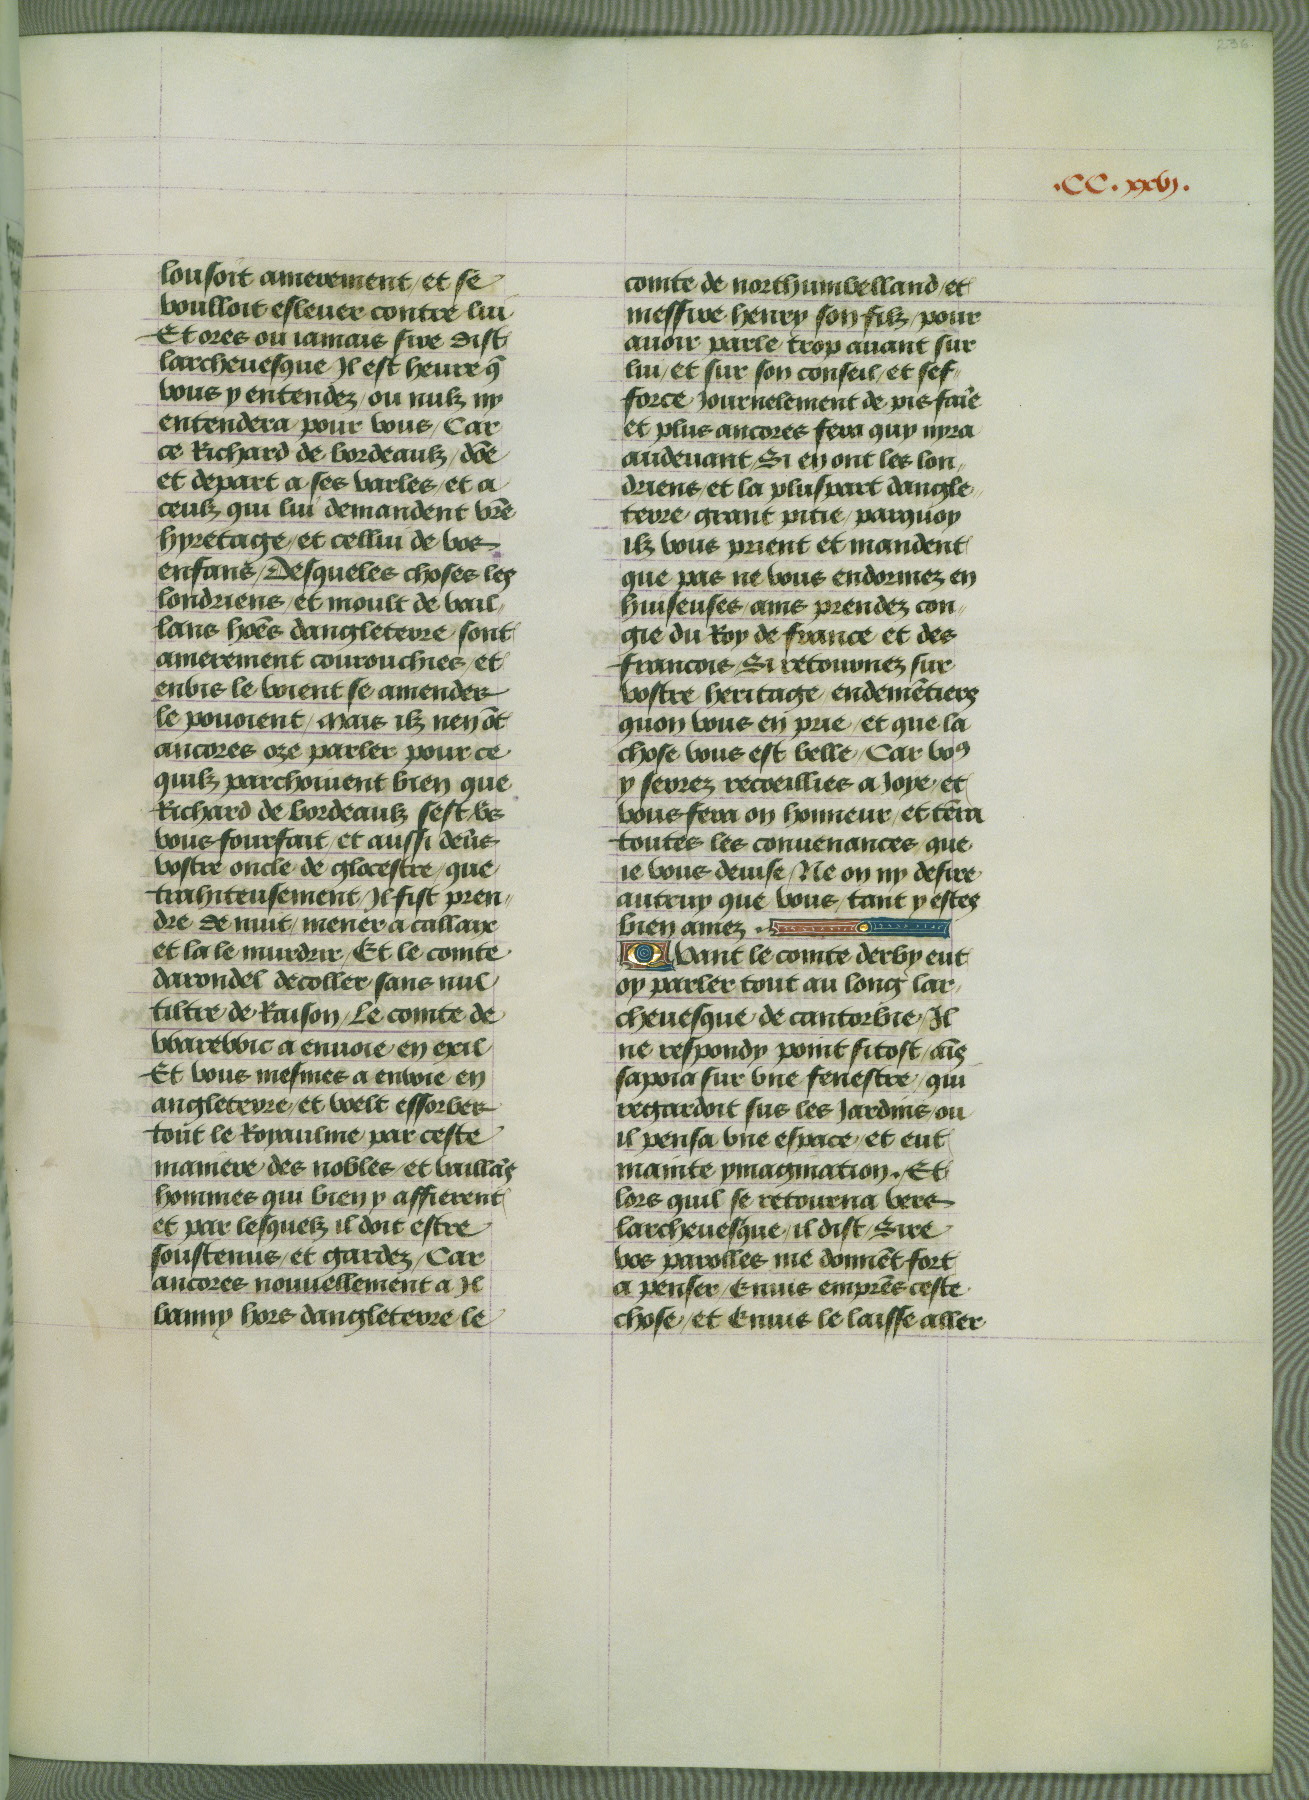 236.
.CC.xxvj.
lousoit amerement / et se
voulloit esleuer contre lui
Et ores ou iamais sire dist
larcheuesque Il est heure q̃
vous y entendez / ou nulz ny
entendera pour vous / Car
ce Richard de bordeaulx / dõe
et depart a ses varles / et a
ceulx qui lui demandent vr̃e
hyretage / et cellui de vos
enfans / Desqueles choses les
londriens / et moult de vail /
lans hõẽs dangleterre sont
amerement courouchies / et
enuis le voient se amender
le pouoient / Mais ilz nen õt
ancores oze parler pour ce
quilz parchoiuent bien que
Richard de bordeaulx sest v̾s
vous fourfait / et aussi deũs
vostre oncle de glocestre / que
trahiteusement / Il fist pren /
dre de nuit / mener a callaix
et la le murdrir / Et le comte
darondel decoller sans nul
tiltre de Raison / Le comte de
vvarevvic a enuoie en exil
Et vous mesmes a envoie en
angleterre / et voelt essorber
tout le Royaulme par ceste
maniere / des nobles / et vaillãs
hommes qui bien y affierent
et par lesquelz il doit estre
soustenus / et gardez / Car
ancores nouuellement a Il
banny hors dangleterre le
comte de northumbelland / et
messire henry son filz / pour
auoir parle trop auant sur
lui / et sur son conseil / et sef /
force Journelement de pis faire
et plus ancores fera quy nyra
audeuant / Si en ont les lon /
driens / et la pluspart dangle /
terre grant pitie / parquoy
ilz vous prient et mandent
que pas ne vous endormez en
huiseuses / ains prendez con /
gie du Roy de france et des
francois / Si retournez sur
vostre heritage / endemẽtiers
quon vous en prie / et que la
chose vous est belle / Car voꝰ
y serrez recoeillies a Joye / et
vous fera on honneur / et tẽra
toutes les conuenances / que
ie vous deuise / Ne on ny desire
autruy que vous / tant y estes
bien amez .
Quant le comte derby eut
oy parler tout au long lar /
cheuesque de cantorbie / Il
ne respondy point si tost / aĩs
sapoia sur vne fenestre / qui
regardoit sus les Jardins / ou
il pensa vne espace / et eut
mainte ymagination . / Et
lors quil se retourna vers
larcheuesque / il dist / Sire
vos parolles me donnẽt fort
a penser / Enuis emprẽs ceste
chose / et Enuis le laisse aller